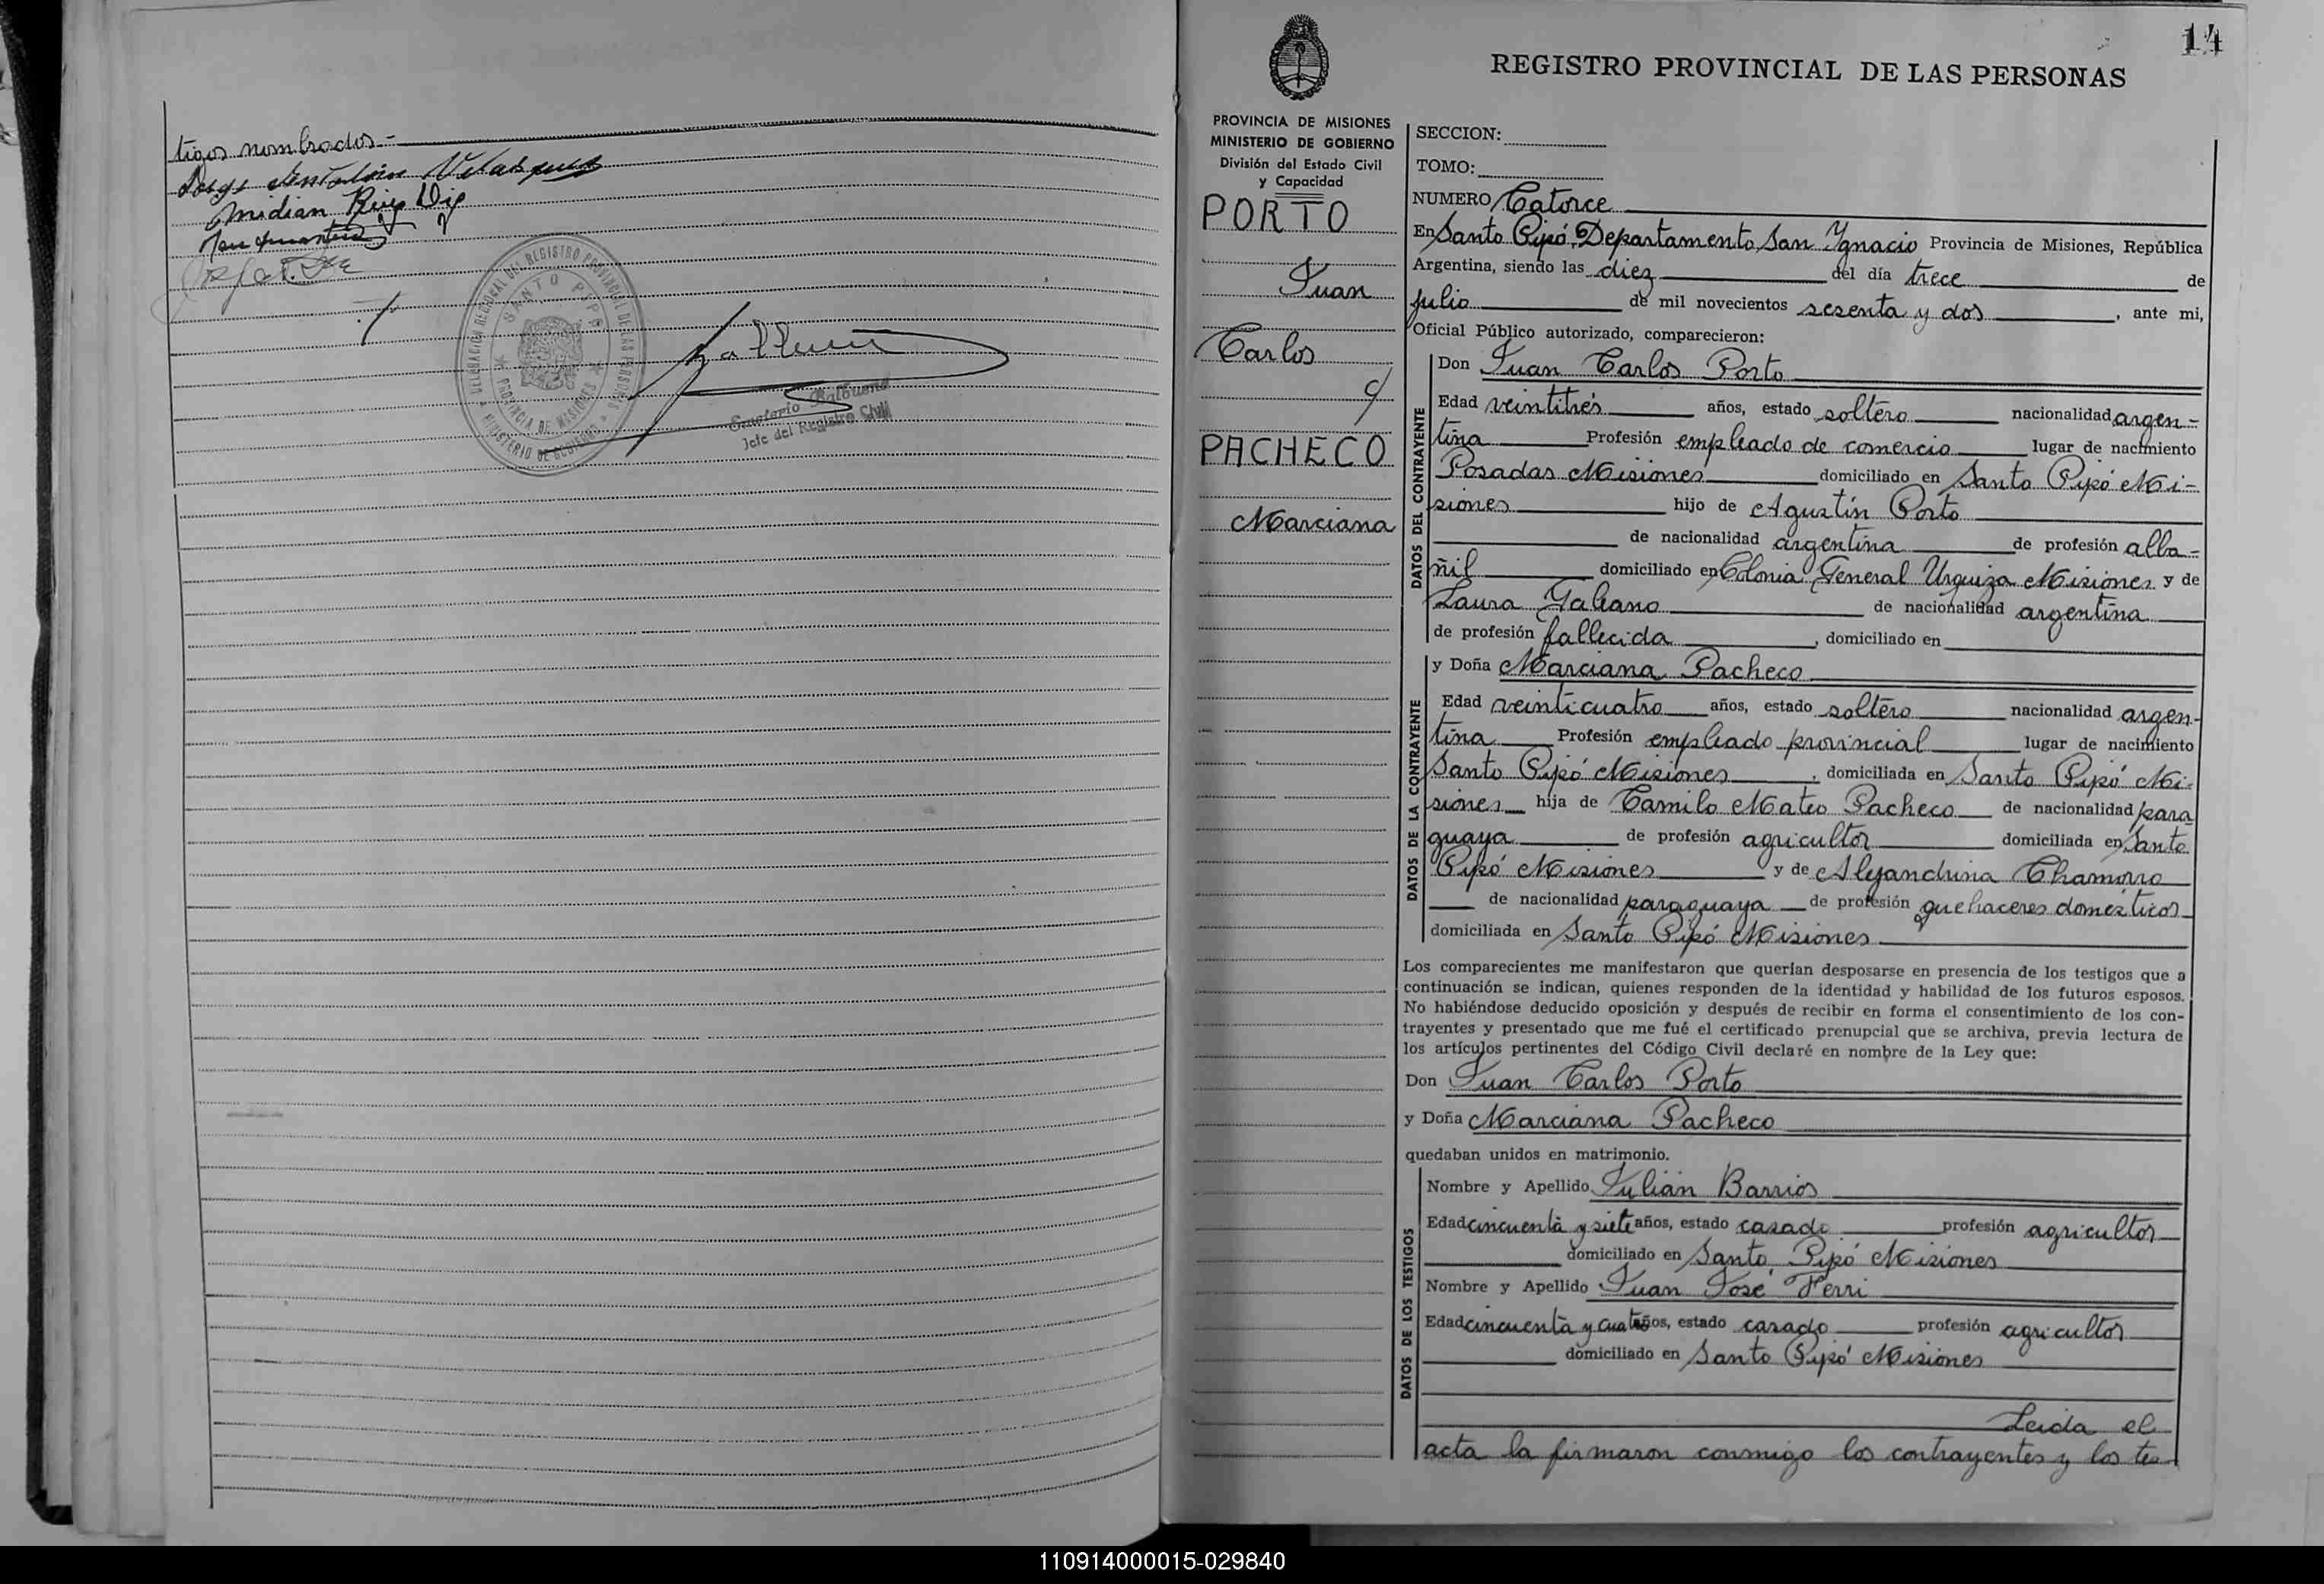 tigos nombrados.-
Midian Ruiz Diaz
DELEGACION REGIONAL DEL REGISTRO PROVINCIAL DE LAS PERSONAS
MINISTERIO DE GOBIERNO
SANTO PIPO
PROVINCIA DE MISIONES
Balbuena
Jefe del Registro Civil
14
REGISTRO PROVINCIAL DE LAS PERSONAS
PROVINCIA DE MISIONES
MINISTERIO DE GOBIERNO
División del Estado Civil
y Capacidad
PORTO
Juan
Carlos
y
PACHECO
Marciana
SECCION:
TOMO:
NUMERO Catorce
En Santo Pipó, Departamento San Ygnacio Provincia de Misiones, República
Argentina, siendo las diez del día trece de
julio de mil novecientos sesenta y dos, ante mi,
Oficial Público autorizado, comparecieron:
DATOS DEL CONTRAYENTE
Don Juan Carlos Porto
Edad veintitrés años, estado soltero nacionalidad argen-
tina Profesión empleado de comercio lugar de nacimiento
Posadas Misiones domiciliado en Santo Pipó Mi-
siones hijo de Agustín Porto
de nacionalidad argentina de profesión alba-
ñil domiciliado en Colonia General Urquiza Misiones y de
Laura Galeano de nacionalidad argentina
de profesión fallecida, domiciliado en
DATOS DE LA CONTRAYENTE
y Doña Marciana Pacheco
Edad veinticuatro años, estado soltero nacionalidad argen-
tina Profesión empleado provincial lugar de nacimiento
Santo Pipó Misiones, domiciliada en Santo Pipó Mi-
siones hija de Camilo Mateo Pacheco de nacionalidad para
guaya de profesión agricultor domiciliada en Santo
Pipó Misiones y de Alejandrina Chamorro
de nacionalidad paraguaya de profesión quehaceres domésticos
domiciliada en Santo Pipó Misiones
Los comparecientes me manifestaron que querían desposarse en presencia de los testigos que a
continuación se indican, quienes responden de la identidad y habilidad de los futuros esposos.
No habiéndose deducido oposición y después de recibir en forma el consentimiento de los con-
trayentes y presentado que me fué el certificado prenupcial que se archiva, previa lectura de
los artículos pertinentes del Código Civil declaré en nombre de la Ley que:
Don Juan Carlos Porto
y Doña Marciana Pacheco
quedaban unidos en matrimonio.
DATOS DE LOS TESTIGOS
Nombre y Apellido Julián Barrios
Edad cincuenta y siete años, estado casado profesión agricultor
domiciliado en Santo Pipó Misiones
Nombre y Apellido Juan José Ferri
Edad cincuenta y cuatro años, estado casado profesión agricultor
domiciliado en Santo Pipó Misiones
Leida el
acta la firmaron conmigo los contrayentes y los tes
110914000015-029840